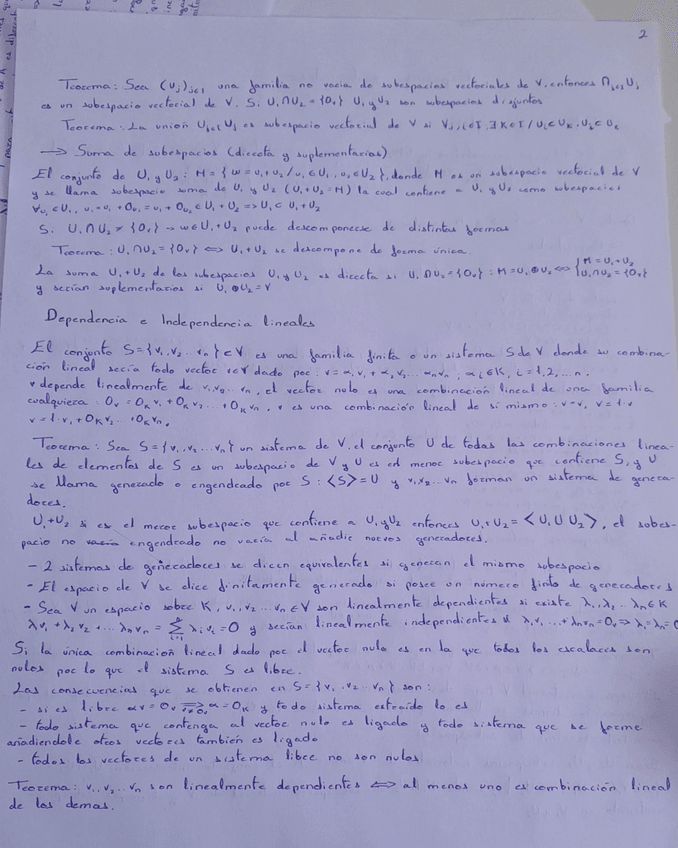 2
Teorema: Sea (Uj)j∈I una familia no vacía de subespacios vectoriales de V, entonces ∩j∈I Uj
es un subespacio vectorial de V. Si U₁∩U₂ = {0v} U₁ y U₂ son subespacios disjuntos
Teorema: La unión Uj∈I Uj es subespacio vectorial de V si ∀j,i∈I, ∃K∈I / Ui⊂UK, Uj⊂UK
→ Suma de subespacios (directa y suplementarios)
El conjunto de U₁ y U₂: H = {w = u₁+u₂ / u₁∈U₁, u₂∈U₂}, donde H es un subespacio vectorial de V
y se llama subespacio suma de U₁ y U₂ (U₁+U₂=H) la cual contiene a U₁ y U₂ como subespacios
∀u₁∈U₁, u₁=u₁+0v=u₁+0u₂∈U₁+U₂ => U₁⊂U₁+U₂
Si U₁∩U₂ ≠ {0v} → w∈U₁+U₂ puede descomponerse de distintas formas
Teorema: U₁∩U₂ = {0v} ⇔ U₁+U₂ se descompone de forma única.
La suma U₁+U₂ de los subespacios U₁ y U₂ es directa si U₁∩U₂={0v} : H=U₁⊕U₂ ⇔ { H=U₁+U₂ U₁∩U₂={0v}
y serían suplementarios si U₁⊕U₂=V
Dependencia e Independencia lineales
El conjunto S={v₁,v₂...vn}∈V es una familia finita o un sistema S de V donde su combina-
ción lineal sería todo vector v∈V dado por: v=α₁v₁+α₂v₂...αnvn; αi∈K, i=1,2,...n.
v depende linealmente de v₁,v₂...vn, el vector nulo es una combinación lineal de una familia
cualquiera: 0v=0Kv₁+0Kv₂...+0Kvn. v es una combinación lineal de si mismo: v=v, v=1·v
v=1·v₁+0Kv₂...+0Kvn.
Teorema: Sea S={v₁,v₂...vn} un sistema de V, el conjunto U de todas las combinaciones linea-
les de elementos de S es un subespacio de V y U es el menor subespacio que contiene S, y U
se llama generado o engendrado por S: <S>=U y v₁,v₂...vn forman un sistema de genera-
dores.
U₁+U₂ si es el menor subespacio que contiene a U₁ y U₂ entonces U₁+U₂=<U₁∪U₂>, el subes-
pacio no varia engendrado no varía al añadir nuevos generadores.
- 2 sistemas de generadores se dicen equivalentes si generan el mismo subespacio
- El espacio de V se dice finitamente generado si posee un número finto de generadores
- Sea V un espacio sobre K, v₁,v₂...vn∈V son linealmente dependientes si existe λ₁,λ₂...λn∈K
λv₁+λ₂v₂+...λnvn=∑ⁿi=1 λivi=0 y serían linealmente independientes si λv₁...+λnvn=0v=>λ₁=λn=0
Si la única combinación lineal dado por el vector nulo es en la que todos los escalares son
nulos por lo que el sistema S es libre.
Las consecuencias que se obtienen en S={v₁,v₂...vn} son:
- si es libre αv=0v =>v≠0v α=0K y todo sistema extraído lo es
- todo sistema que contenga al vector nulo es ligado y todo sistema que se forme
añadiendole otros vectores también es ligado
- todos los vectores de un sistema libre no son nulos
Teorema: v₁,v₂...vn son linealmente dependientes ⇔ al menos uno es combinación lineal
de los demas.